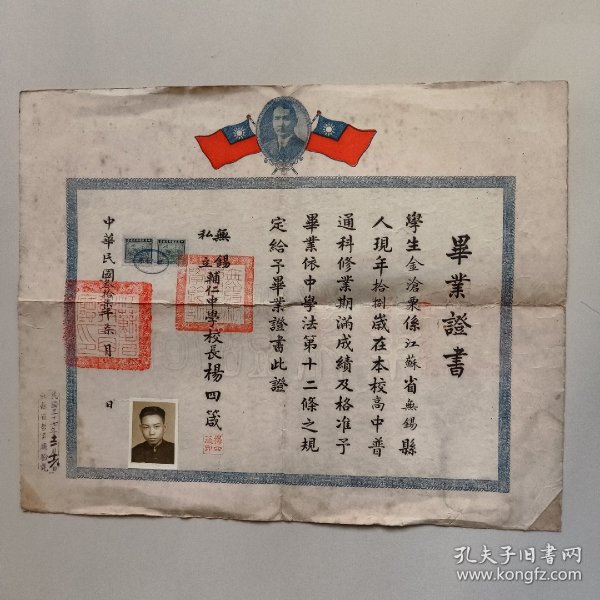 畢業證書
學生金滄粟係江蘇省無錫縣
人現年拾捌歲在本校高中普
通科修業期滿成績及格准予
畢業依中學法第十二條之規
定給予畢業證書此證
無錫
私立輔仁中學校長楊四箴
中華民國叁拾
年
月
日
孔夫子旧书网
www.kongfz.com